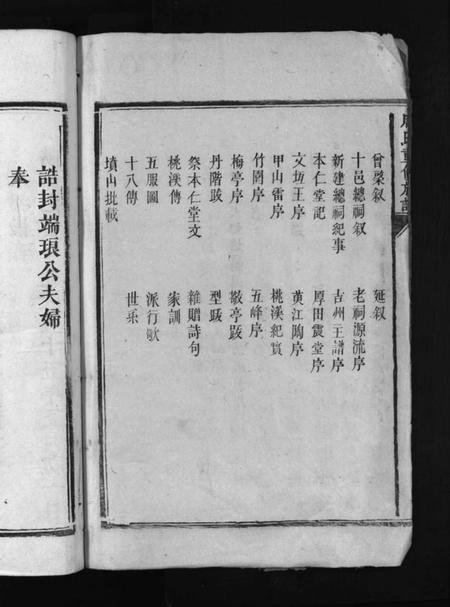 曾棨叙 延叙
十邑總祠叙 老祠源流序
新建總祠紀事 吉州王譜序
本仁堂記 厚田震堂序
文垣王序 黄江陶序
甲山雷序 桃漢紀實
竹園序 五峰序
梅亭序 敬亭跋
丹階跋 型跋
祭本仁堂文 雜贈詩句
桃漢傳 家訓
五服圖 派行歌
十八傳 世系
墳山批載
誥封端琅公夫婦
奉